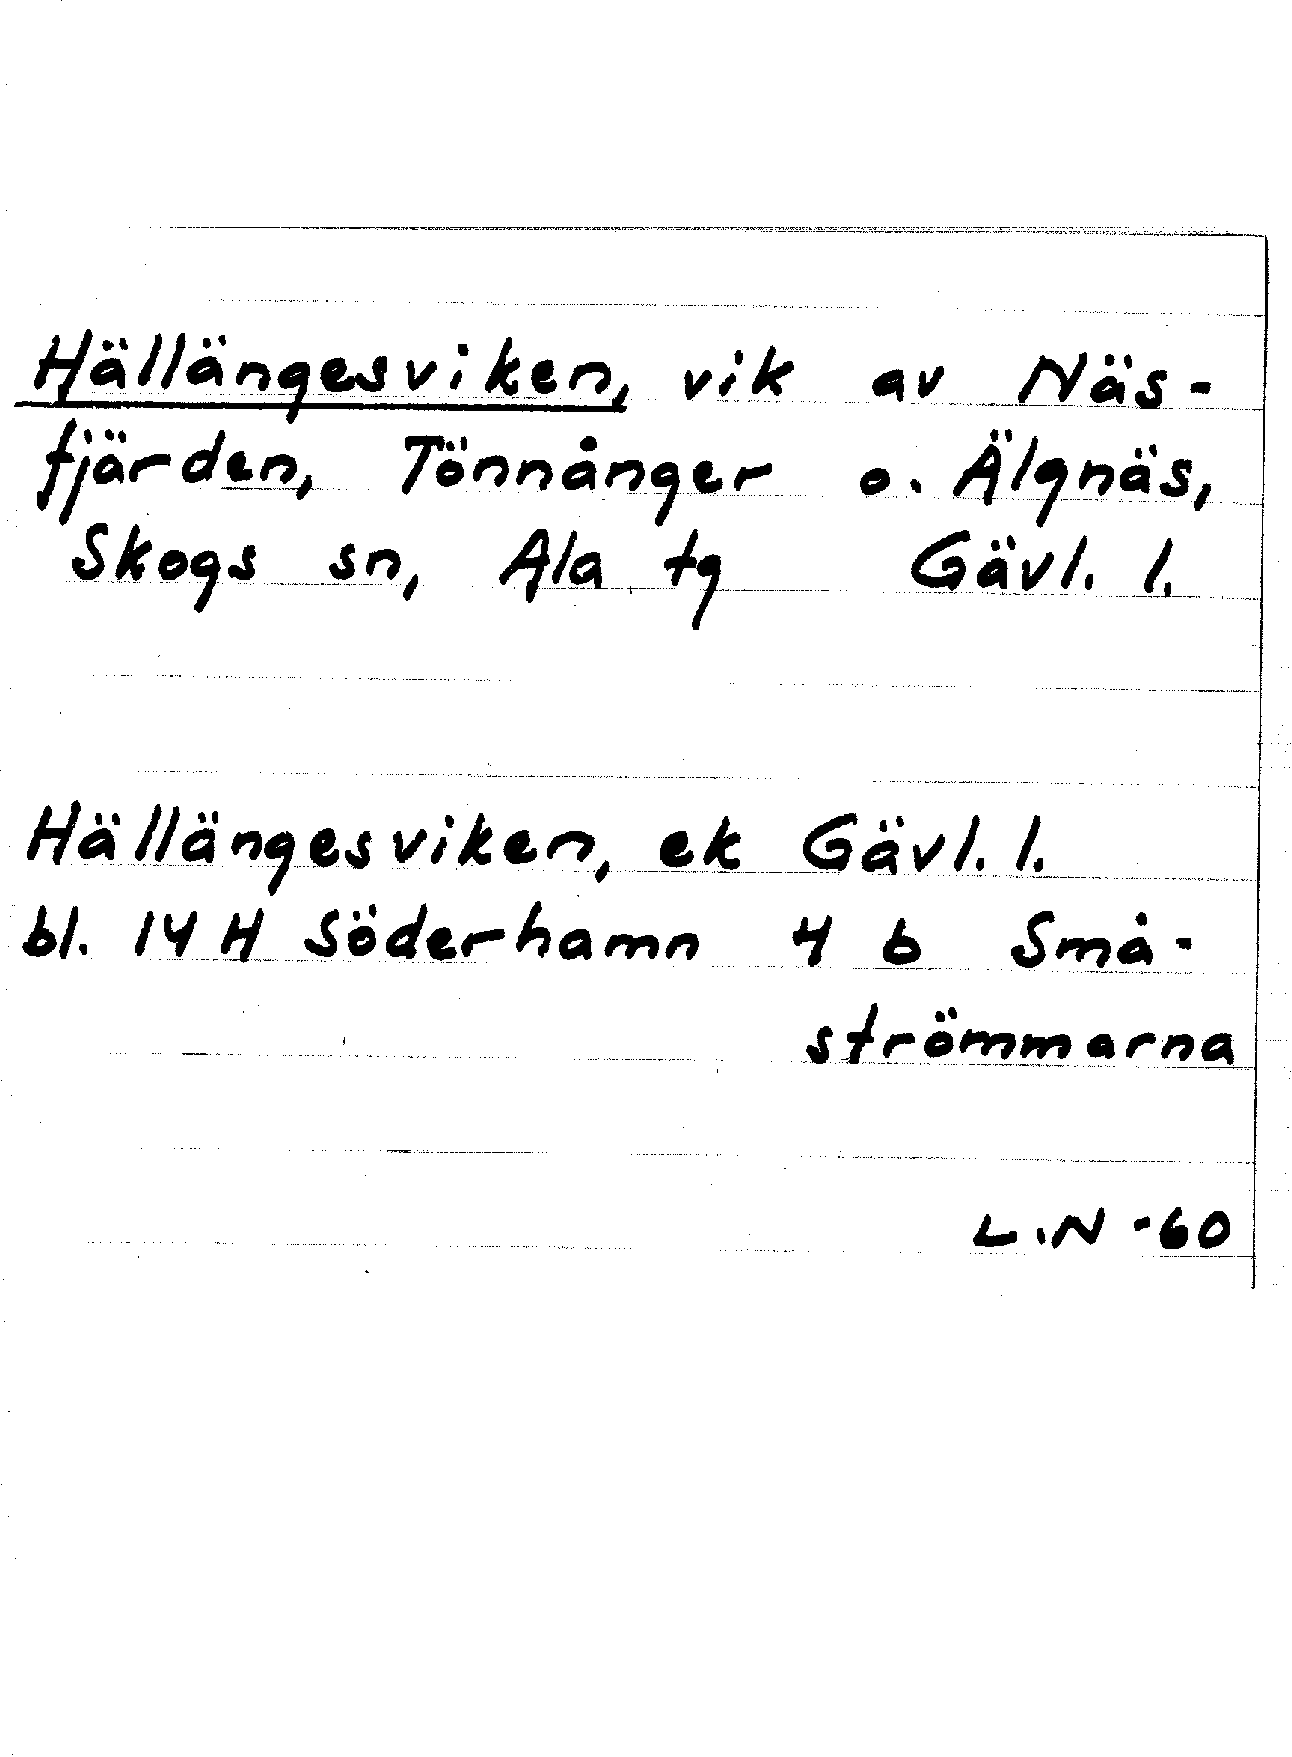 Hällängesviken, vik av Näs-
fjärden, Tönnånger o. Älgnäs,
Skogs sn, Ala tg Gävl. l.
Hällängesviken, ek Gävl. l.
bl. 14 H Söderhamn 4 b Små-
strömmarna
L.N -60